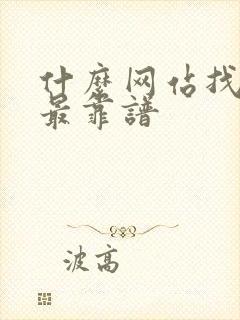 什麼网佔找
最靠譜
波高